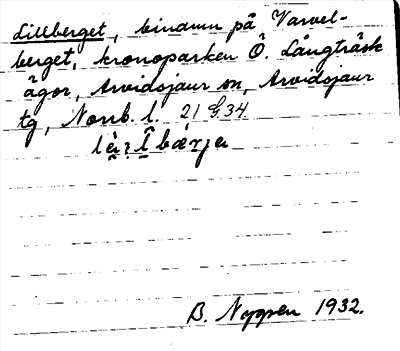 Lillberget, bindmn på Varvel-
berget, kronoparken Ö. Långträsk
ägor, Arvidsjaur sn, Arvidsjaur
tg, Norrb. l. 21 G 34
B. Nygren 1932.